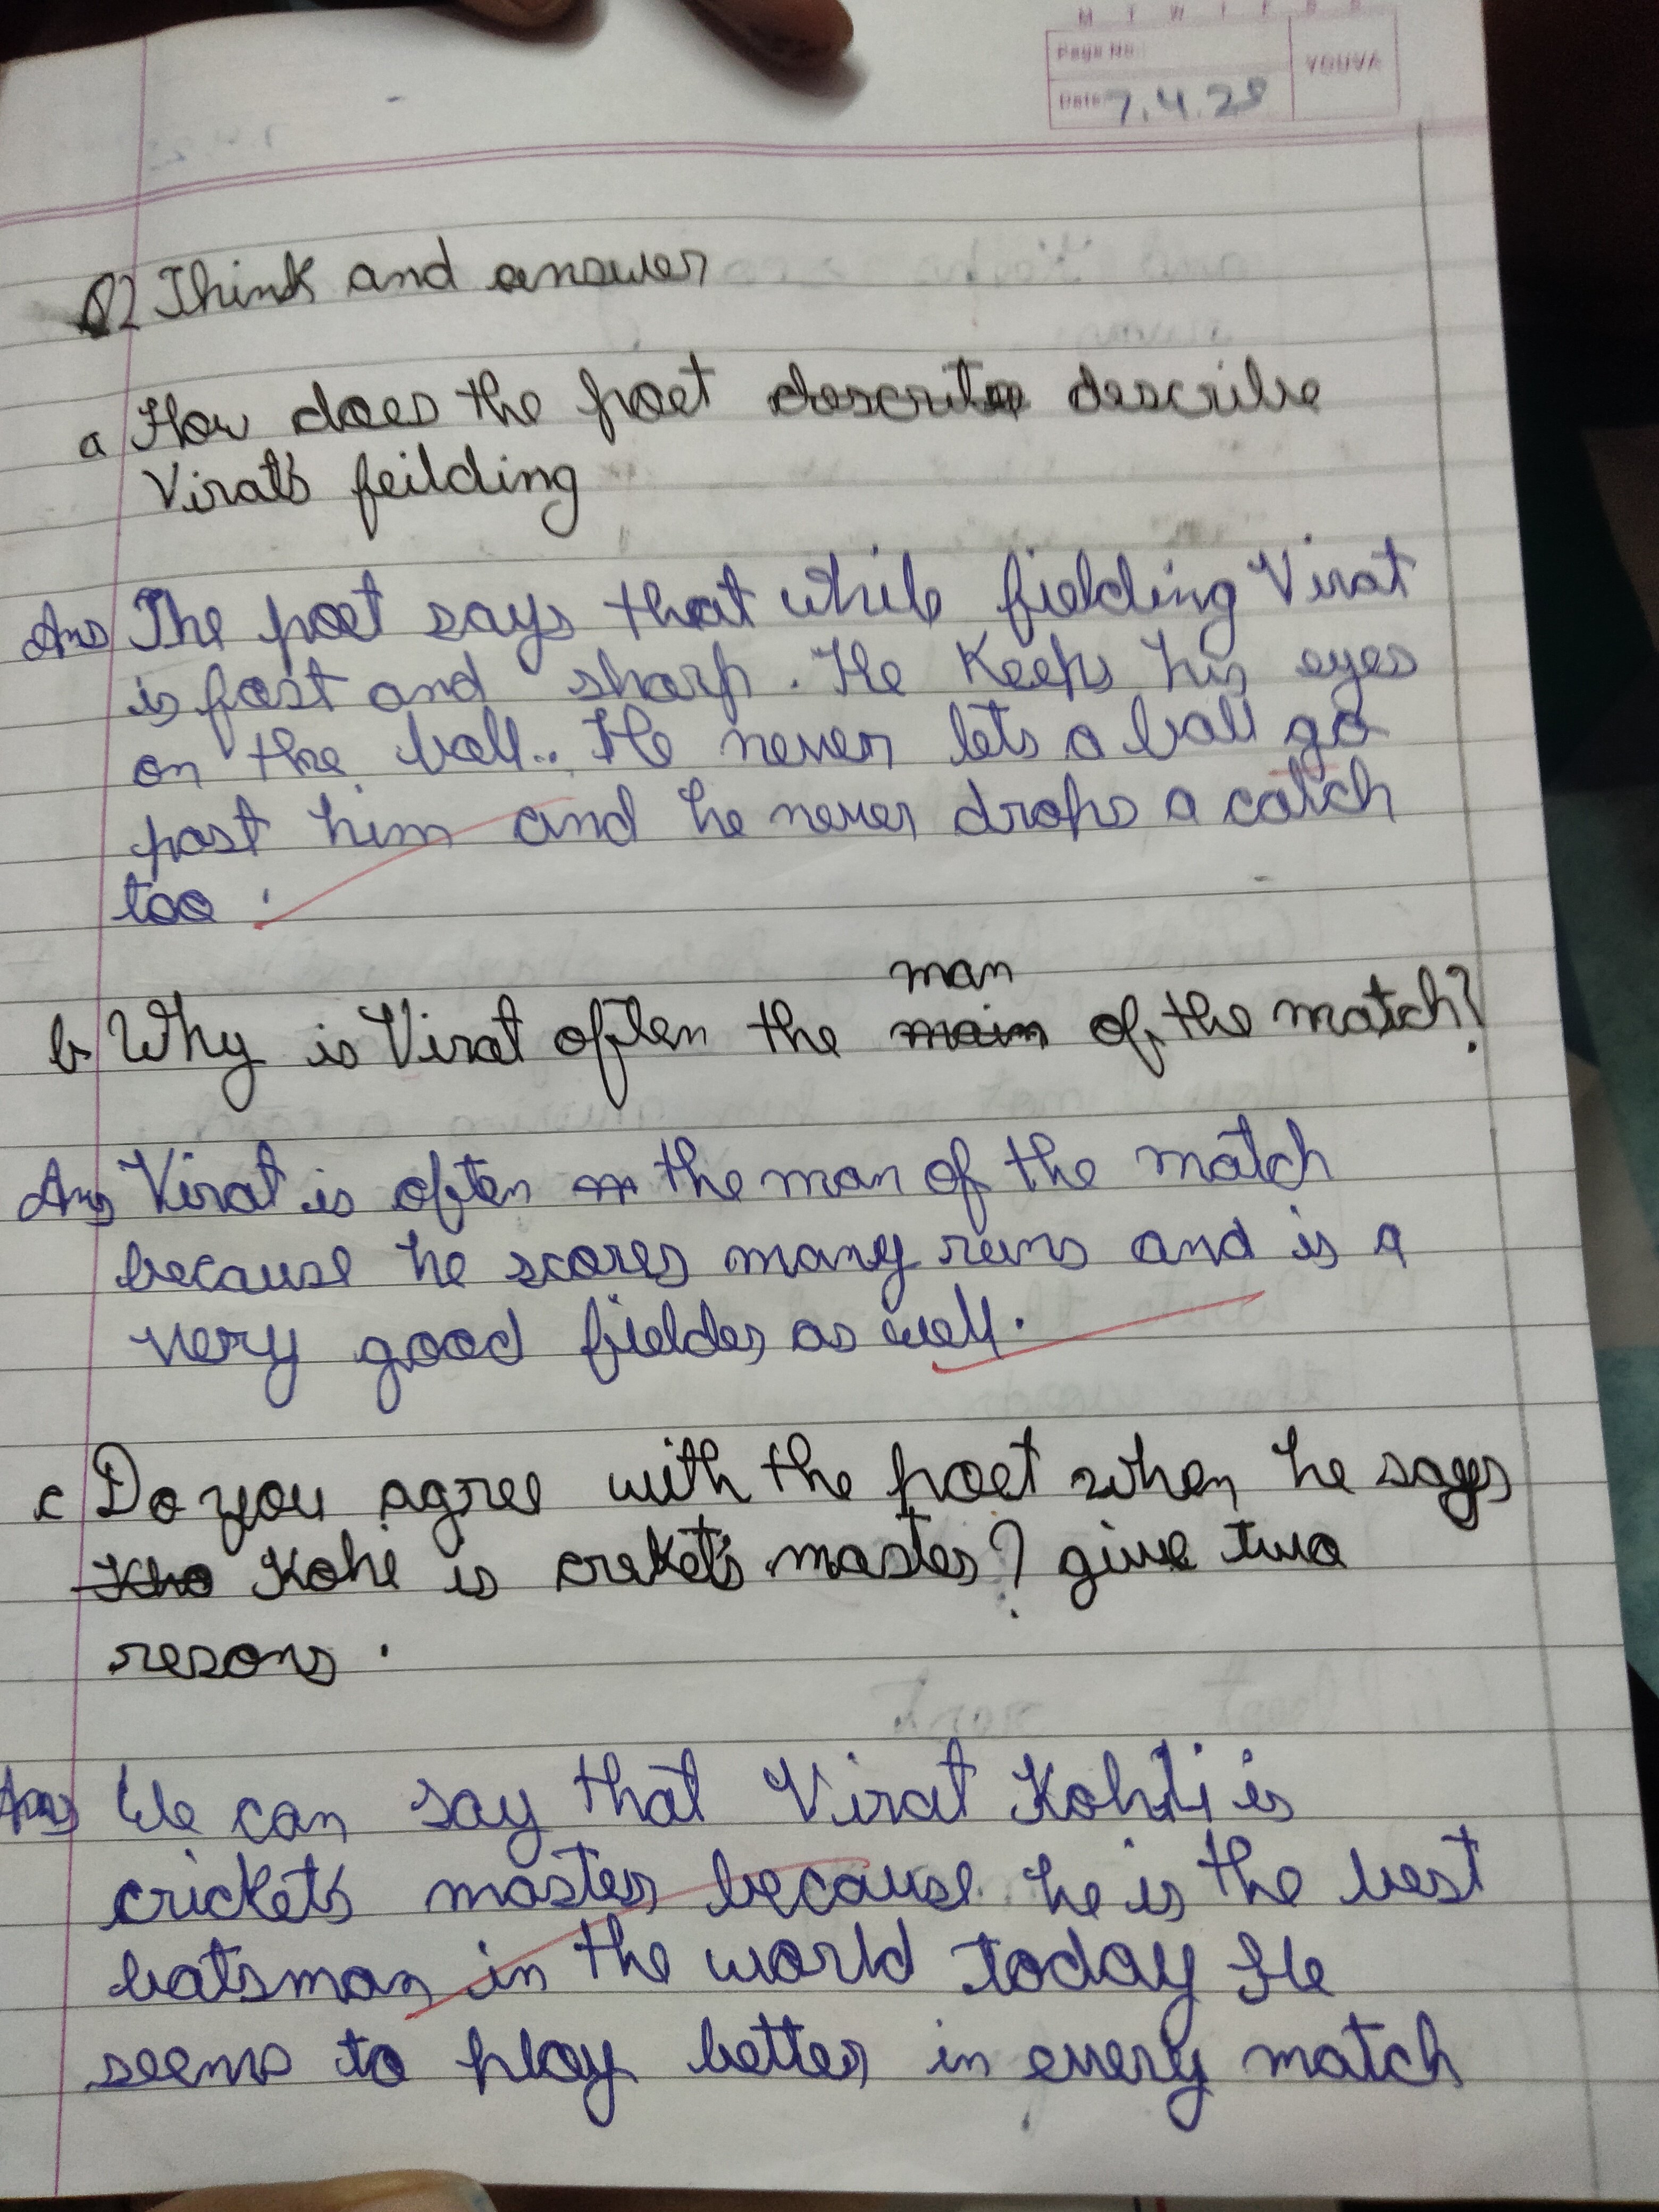 M T W T F S S
Page No.:
YOUVA
Date: 7.4.28
Q2 Think and answer
a How does the poet describe
Virat's feilding
Ans The poet says that while fielding Virat
is fast and sharp. He Keeps his eyes
on the ball.. He never lets a ball go
past him and he never drops a catch
too.
man
b Why is Virat often the main of the match?
Ans Virat is often the man of the match
because he scores many runs and is a
very good fielder as well.
c Do you agree with the poet when he says
Kho Kohi is creket's master? give two
resons.
Ans We can say that Virat Kohli is
cricket's master because he is the best
batsman in the world today He
seems to play better in every match